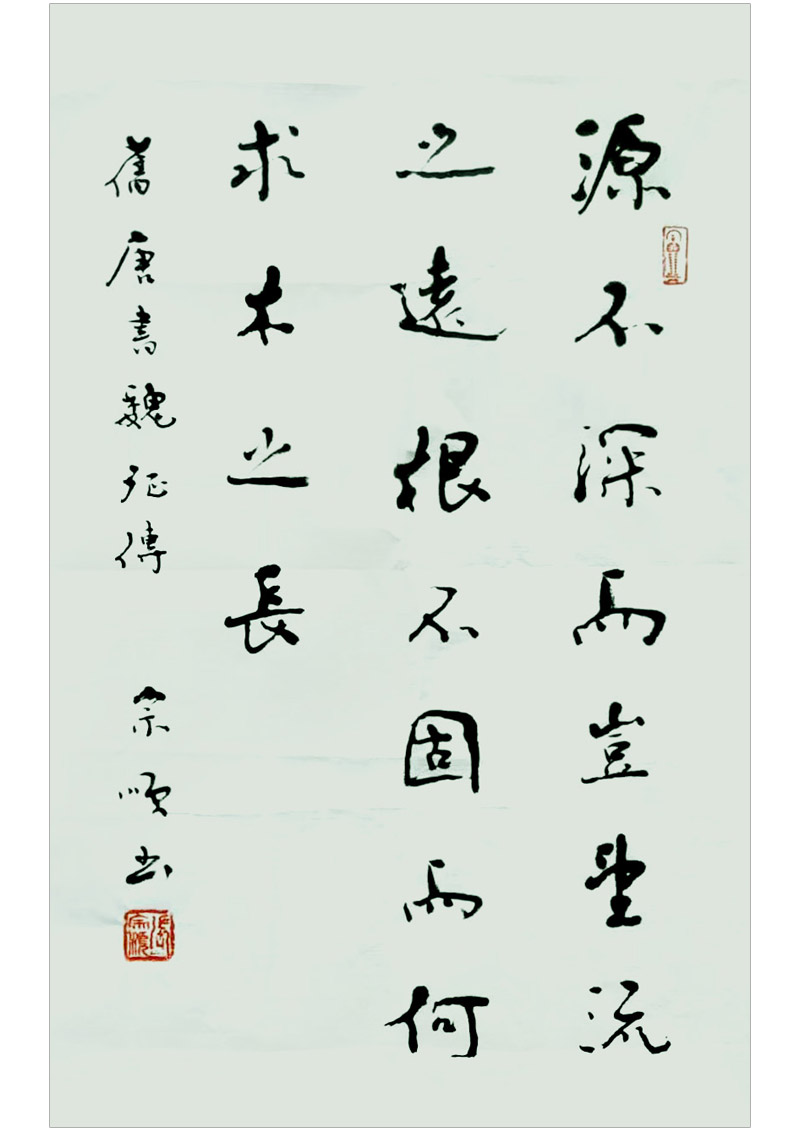 源不深而豈望流
之遠根不固而何
求木之長
舊唐書魏征傳 宗順书
張宗順